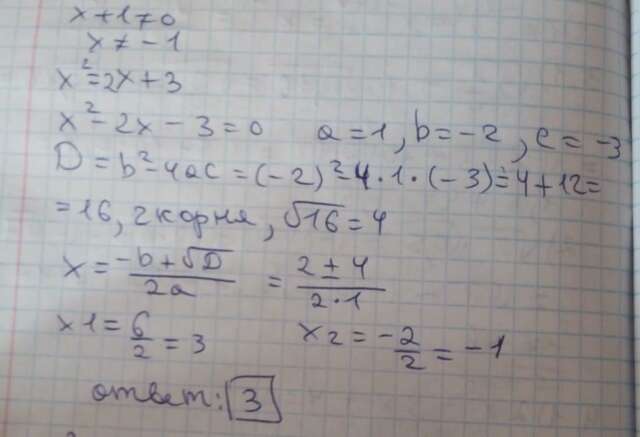 x+1≠0
x≠-1
x²=2x+3
x²-2x-3=0 a=1, b=-2, c=-3
D=b²-4ac=(-2)²-4·1·(-3)=4+12=
=16, 2 корня, √16=4
x=(-b+√D)/(2a) = (2±4)/(2·1)
x1=6/2=3 x2=-2/2=-1
ответ: 3